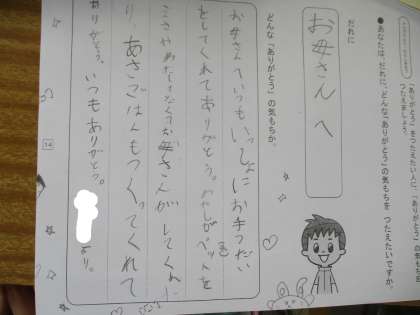 「ありがとう」をつたえたい人に、「ありがとう」の気もちを
つたえましょう。
●あなたは、だれに、どんな「ありがとう」の気もちを つたえたいですか。
だれに
お母さんへ
どんな「ありがとう」の気もちか。
お母さんへいつもいっしょにお手つだい
をしてくれてありがとう。わたしがペットを
お母さんがしてくれ
り、あさごはんもつくってくれて
ありがとう。いつもありがとう。
より。
14